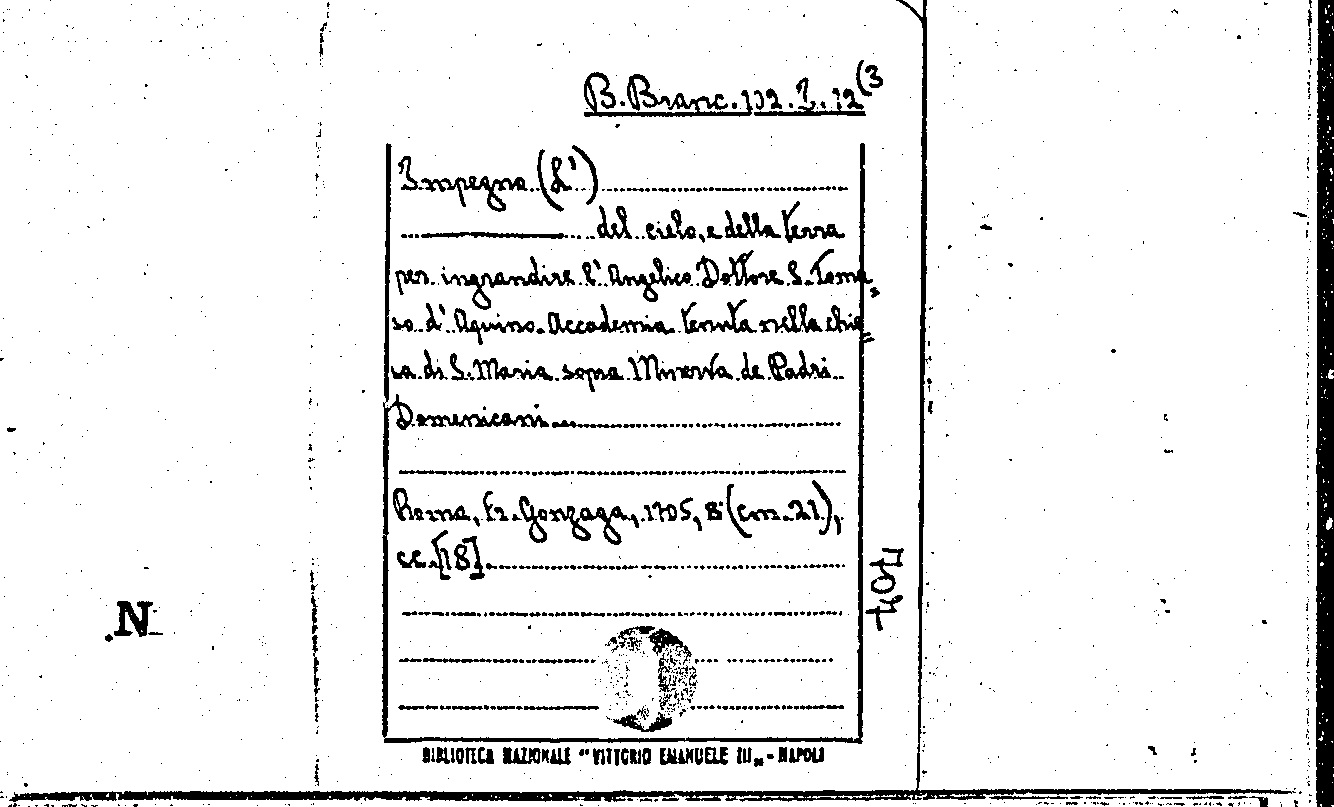 B. Branc. 112. I. 12 (3
Impegno (L')
del cielo, e della terra
per ingrandire l'Angelico Dottore S. Toma=
so d'Aquino. Accademia tenuta nella chie=
sa di S. Maria sopra Minerva de Padri
Domenicani
Roma, Fr. Gonzaga, 1705, 8° (cm. 21),
cc. [18].
404
N
BIBLIOTECA NAZIONALE "VITTORIO EMANUELE III„ - NAPOLI